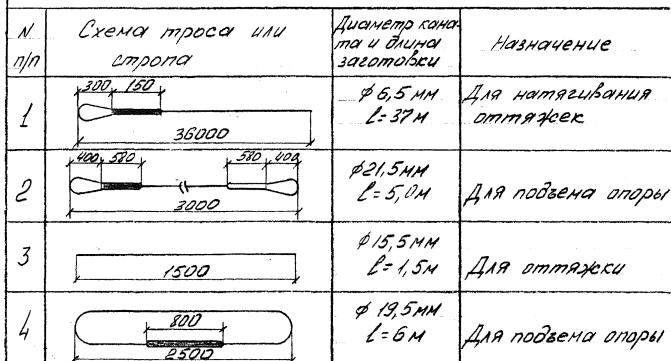 N п/п
Схема троса или стропа
Диаметр кана-
та и длина
заготовки
Назначение
1
300 150
36000
φ 6,5 мм
ℓ = 37 м
Для натягивания
оттяжек
2
400 580 580 400
3000
φ 21,5 мм
ℓ = 5,0 м
Для подъема опоры
3
1500
φ 15,5 мм
ℓ = 1,5 м
Для оттяжки
4
800
2500
φ 19,5 мм
ℓ = 6 м
Для подъема опоры